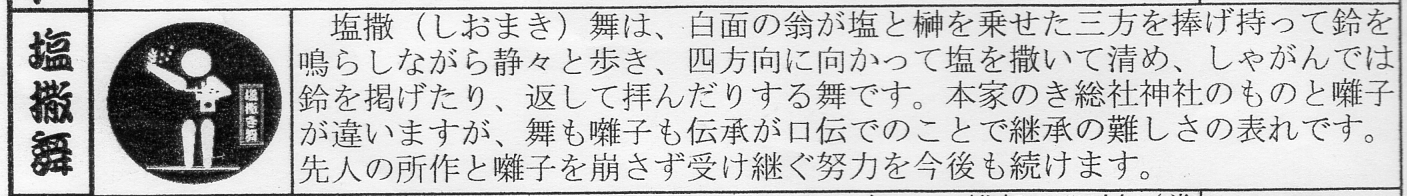 塩撒舞
塩撒き舞
塩撒（しおまき）舞は、白面の翁が塩と榊を乗せた三方を捧げ持って鈴を
鳴らしながら静々と歩き、四方向に向かって塩を撒いて清め、しゃがんでは
鈴を掲げたり、返して拝んだりする舞です。本家のき総社神社のものと囃子
が違いますが、舞も囃子も伝承が口伝でのことで継承の難しさの表れです。
先人の所作と囃子を崩さず受け継ぐ努力を今後も続けます。